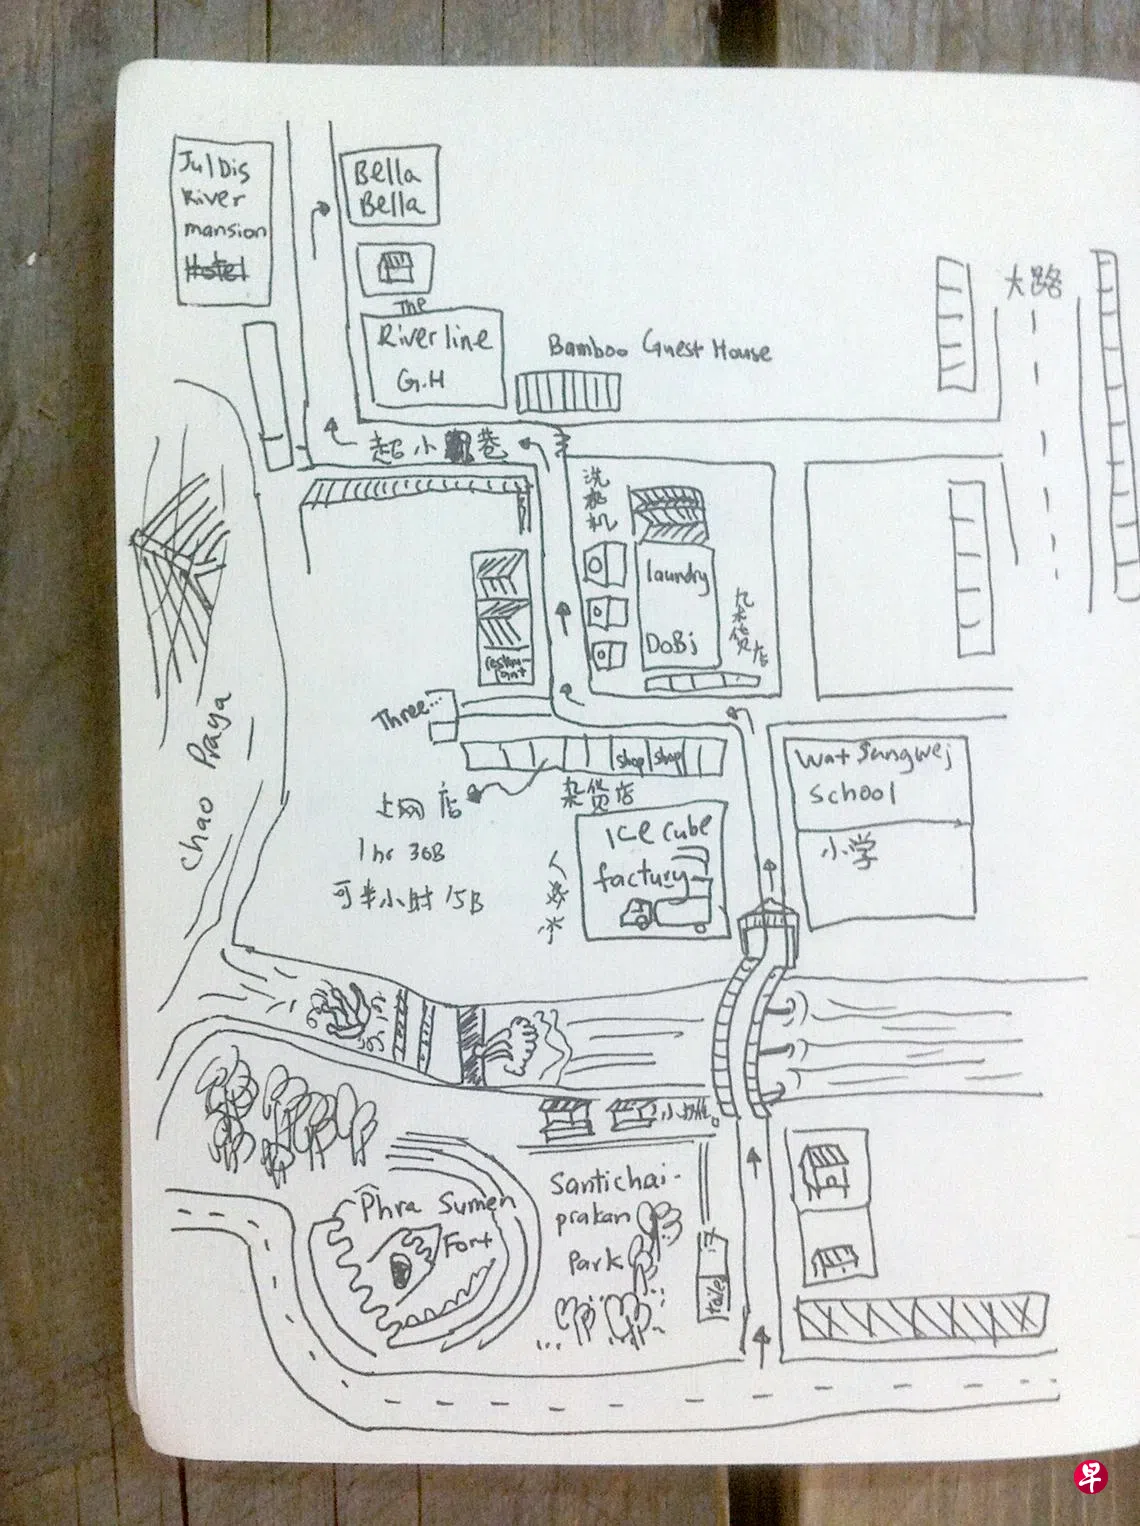 JulDis
River
mansion
Hotel
Bella
Bella
The
River line
G.H
Bamboo Guest House
大路
超小巷
洗衣机
laundry
DoBj
杂货店
restau-
rant
Three...
shop shop
杂货店
上网店
1 hr 30B
可半小时 15B
Ice cube
factory
人造冰
Wat Sangwej
School
小学
Chao Praya
Phra Sumen
Fort
Santichai-
prakan
Park
toilet
早